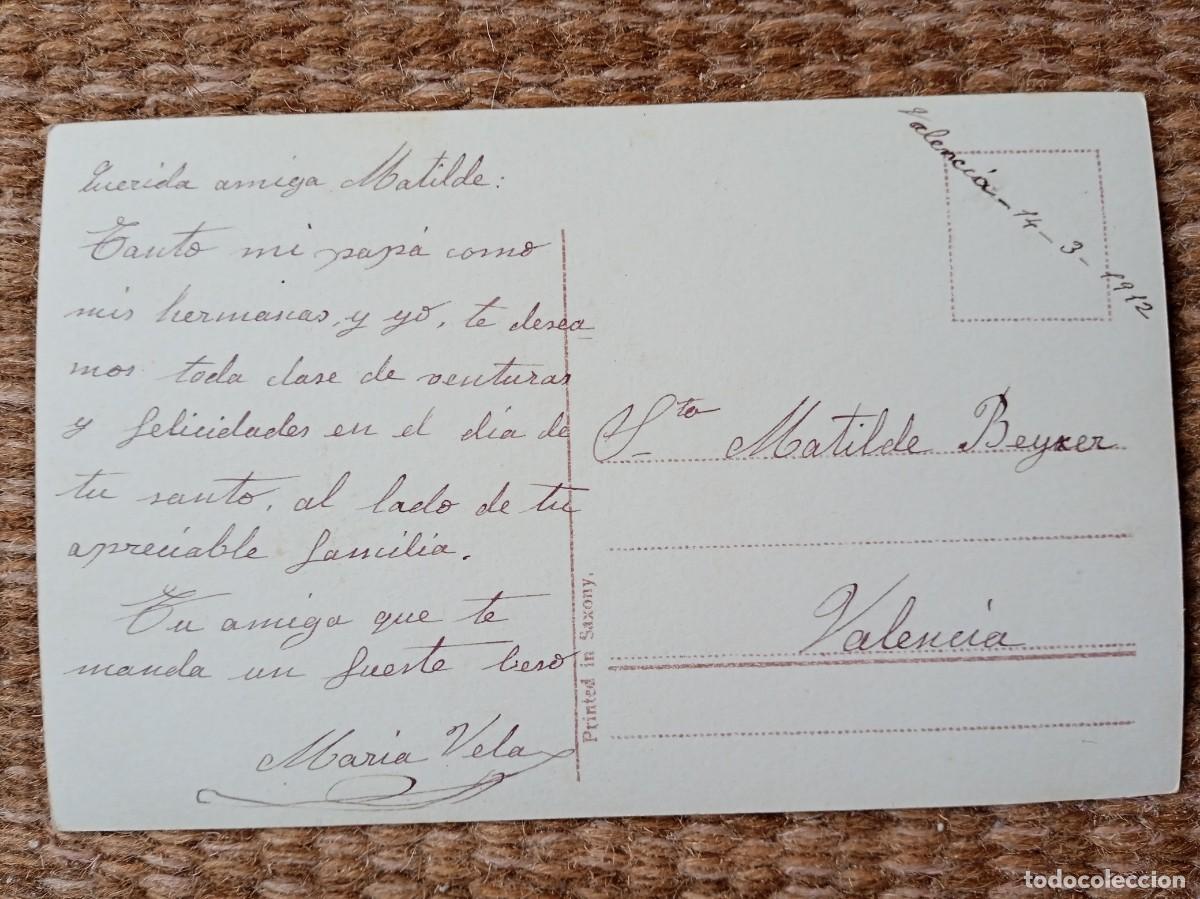 Querida amiga Matilde:
Tanto mi papá como
mis hermanas, y yo, te desea
mos toda clase de venturas
y felicidades en el día de
tu santo, al lado de tu
apreciable familia.
Tu amiga que te
manda un fuerte beso
María Vela
Printed in Saxony.
Valencia - 14 - 3 - 1912
Sta Matilde Beyxer
Valencia
todocoleccion